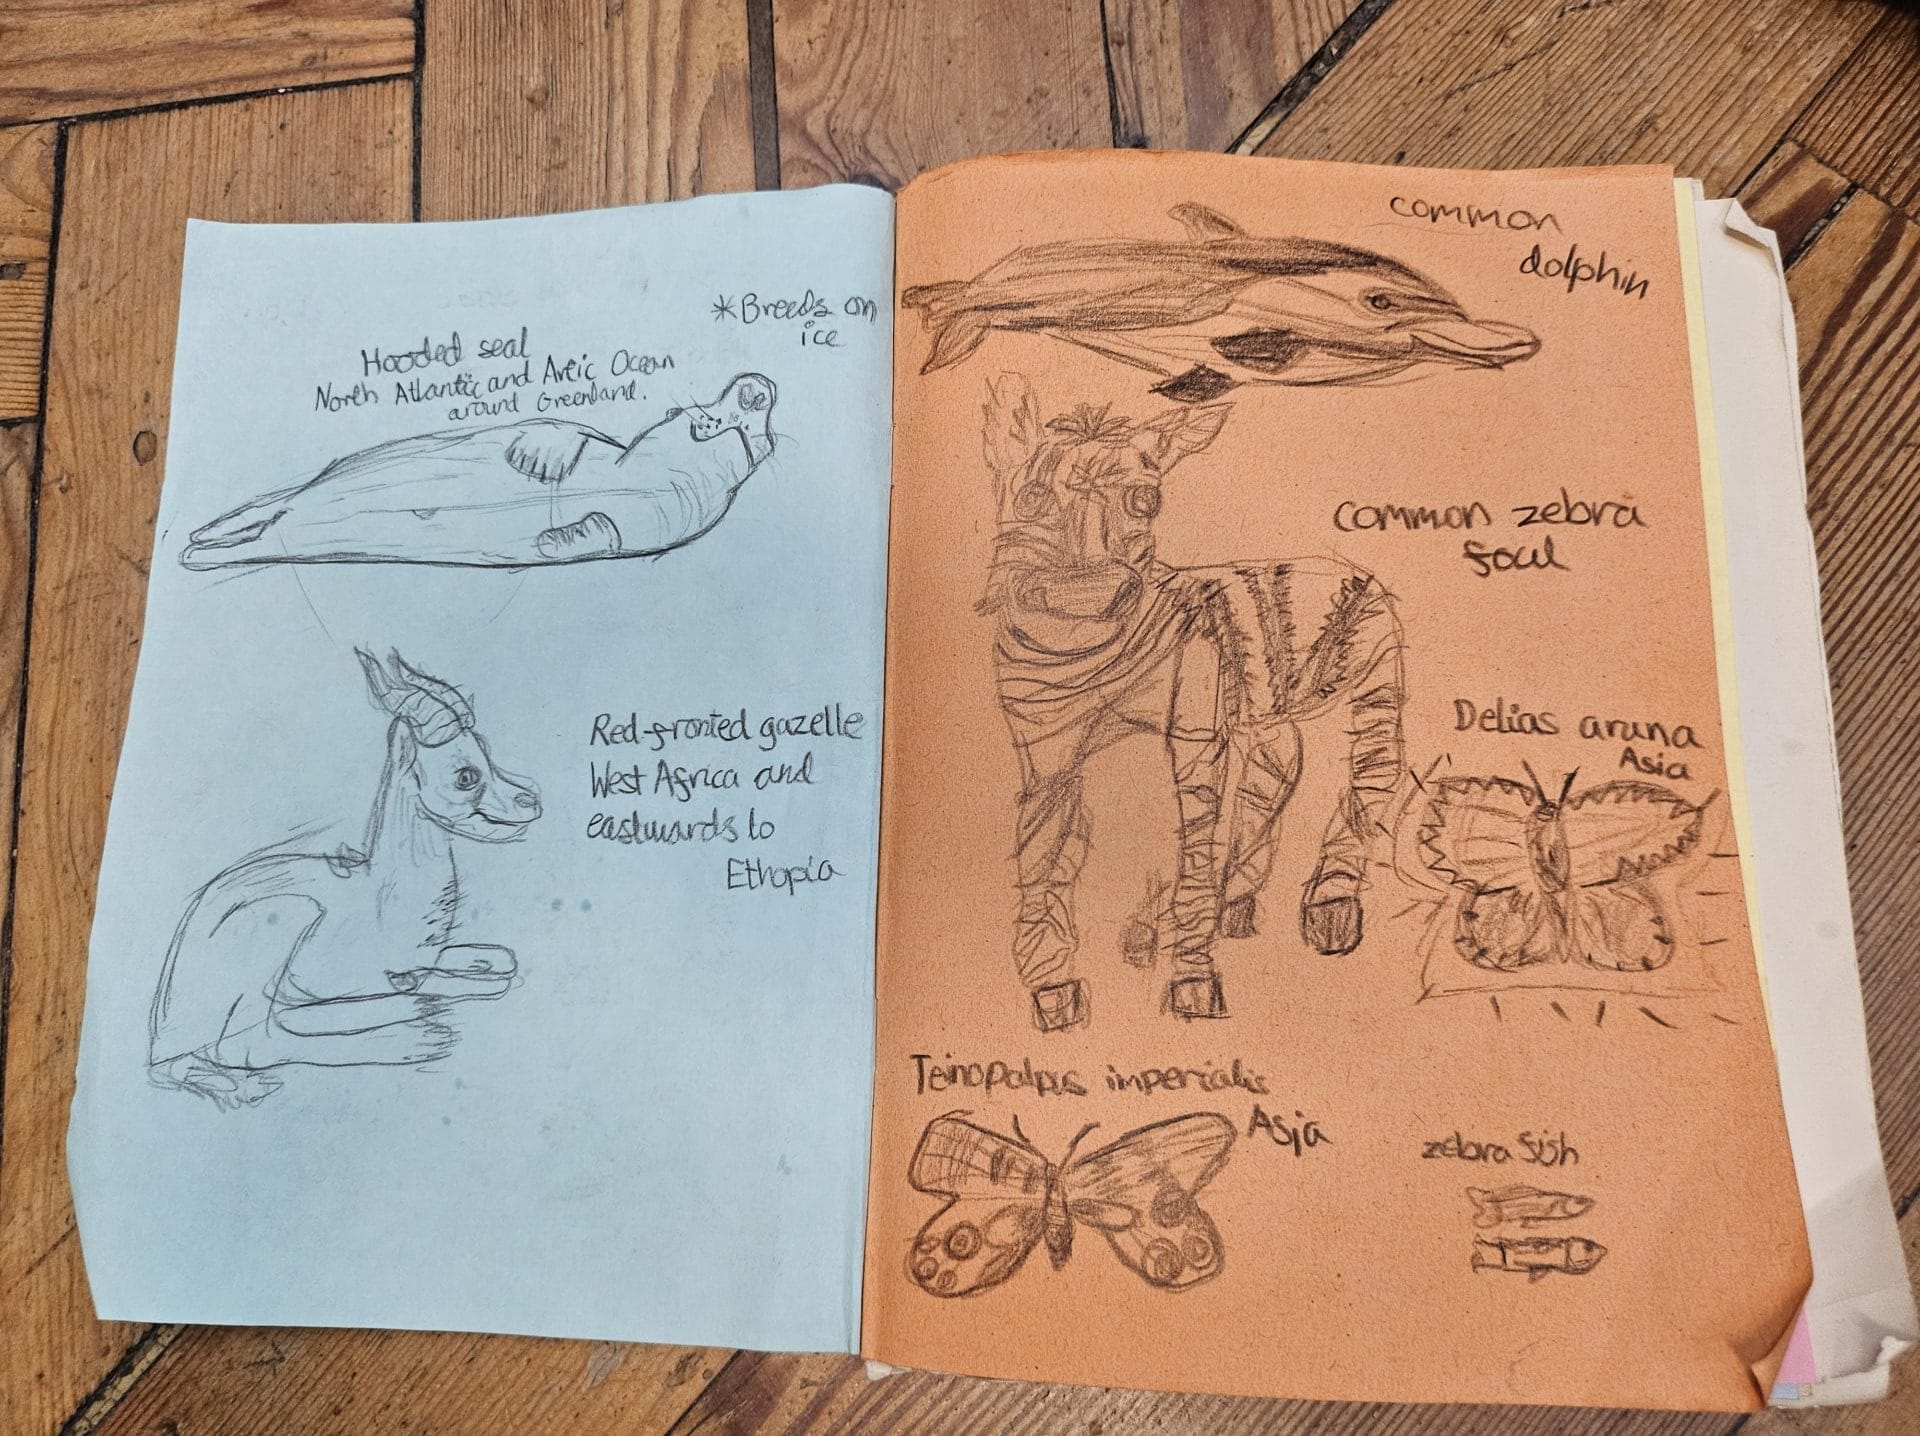 *Breeds on
ice
Hooded seal
North Atlantic and Arctic Ocean
around Greenland.
Red-fronted gazelle
West Africa and
eastwards to
Ethopia
common
dolphin
common zebra
foal
Delias aruna
Asia
Teinopalpus imperialis
Asia
zebra fish